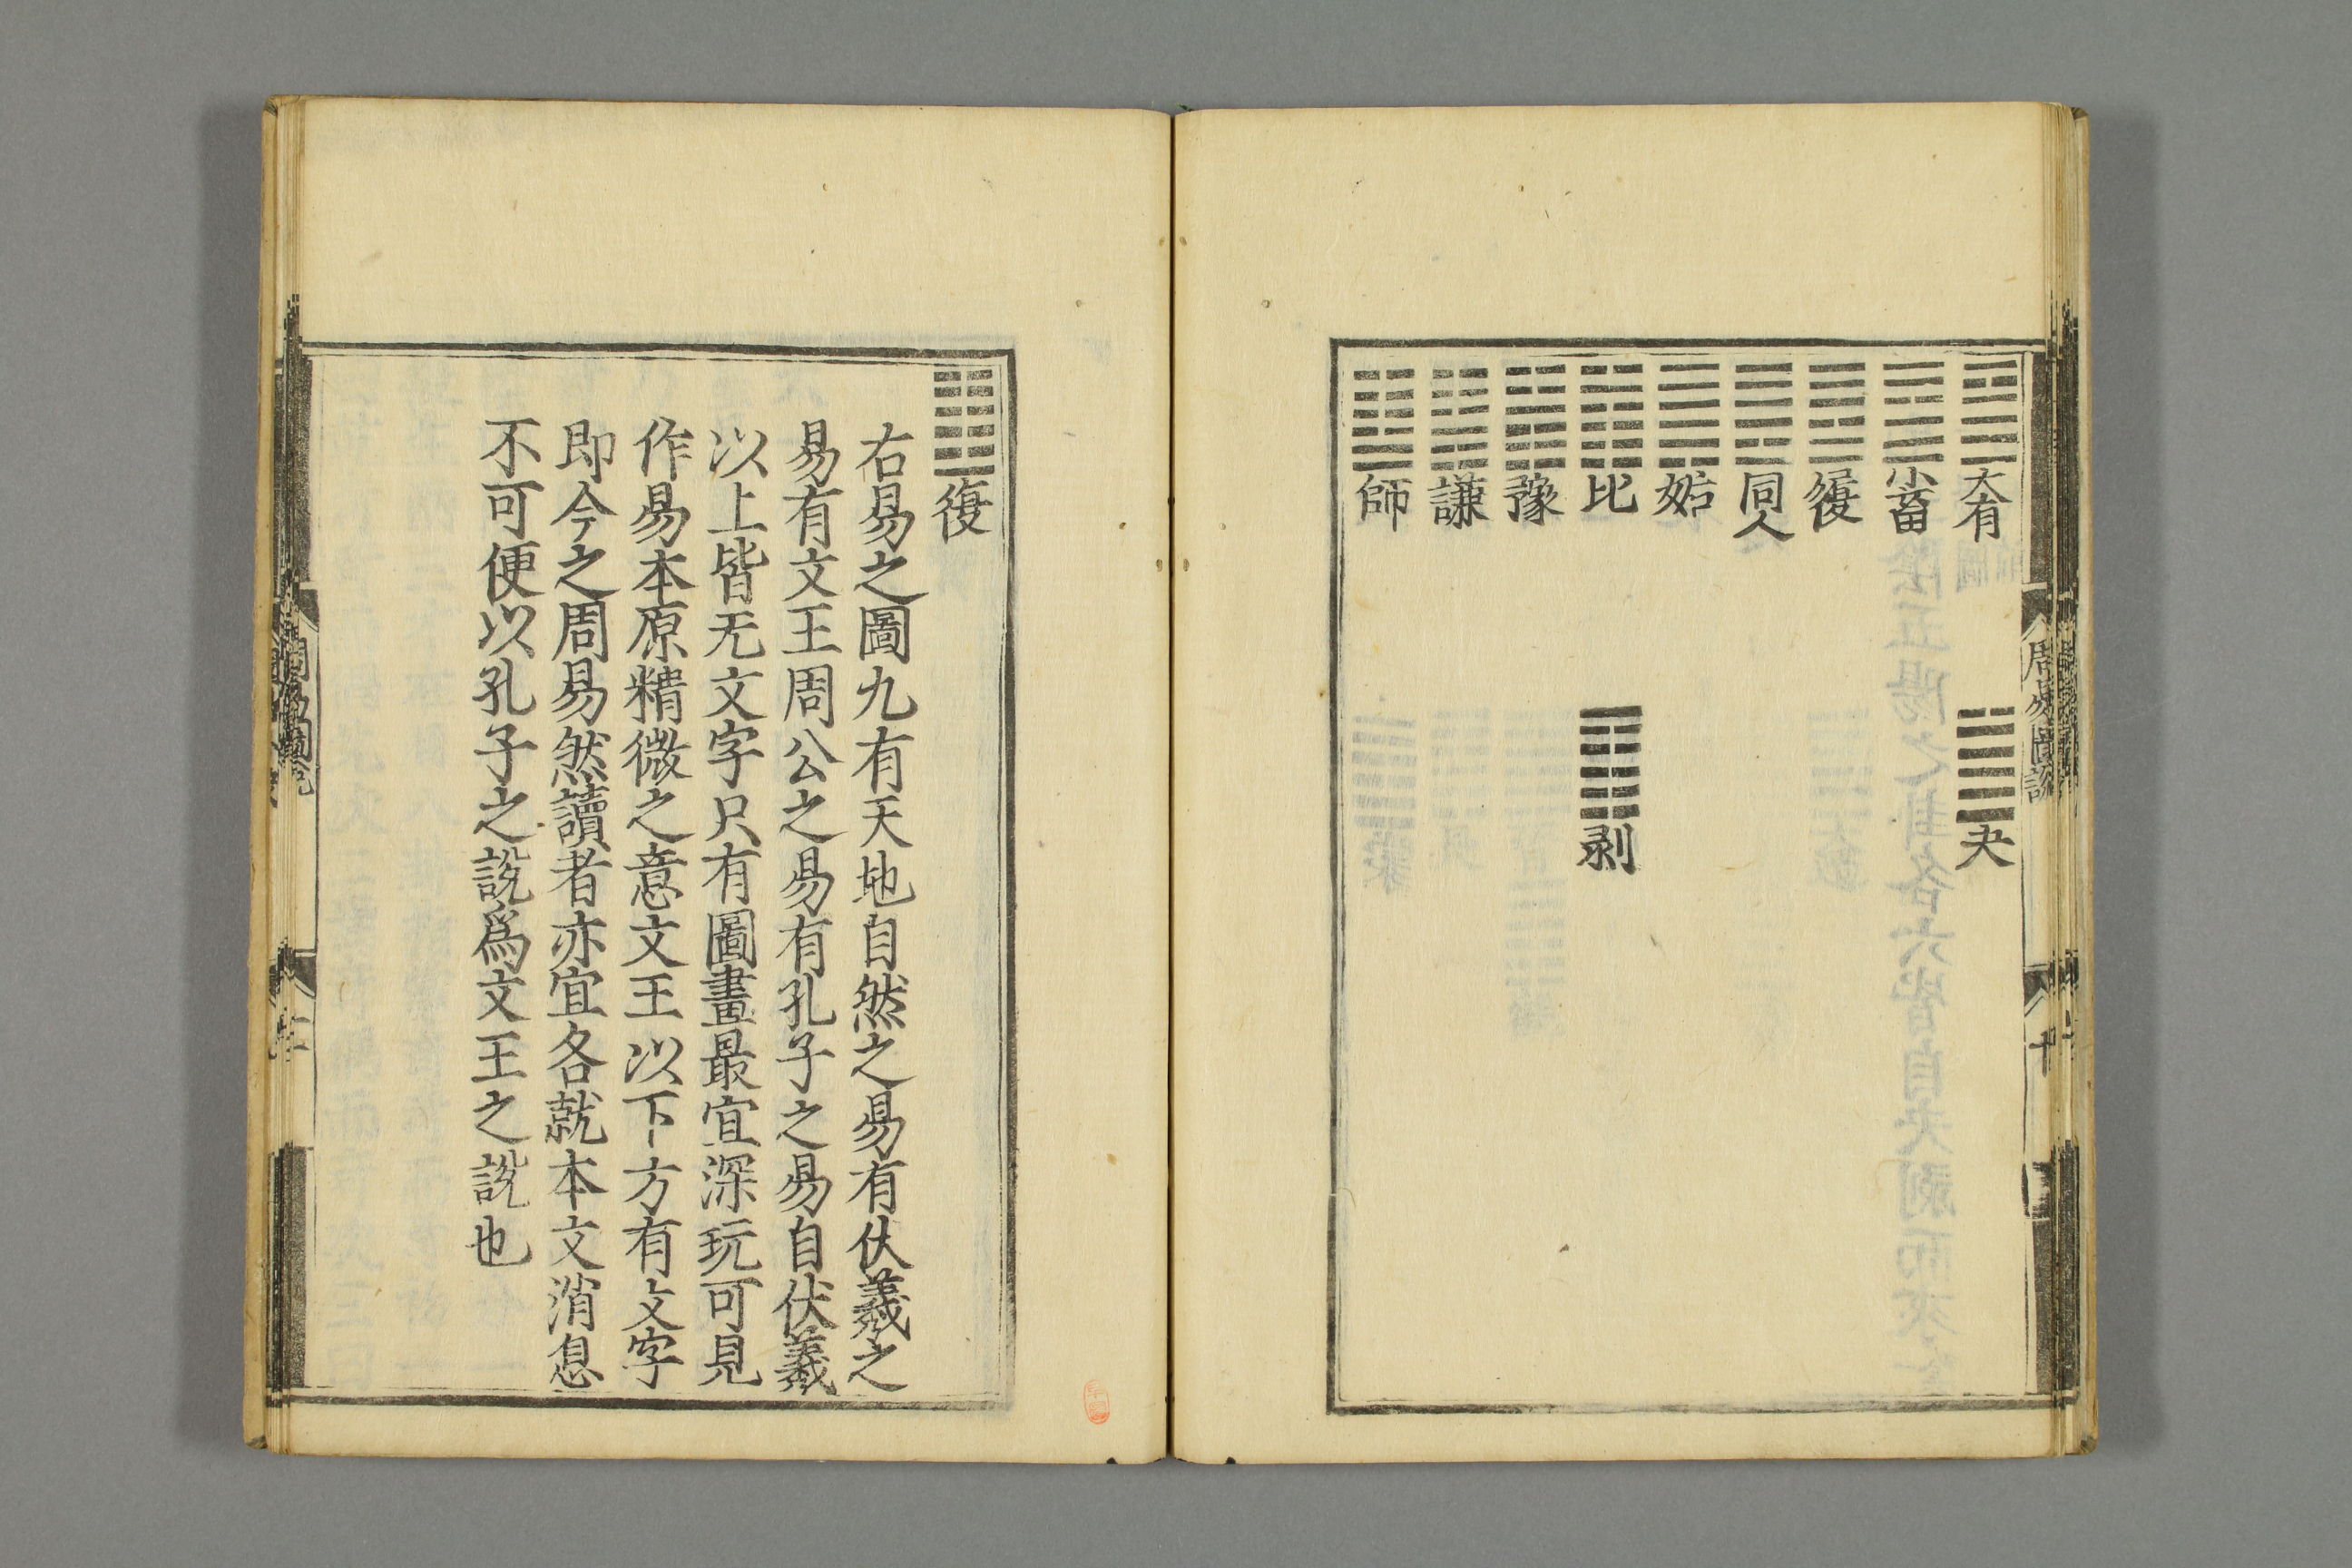 周易圖説
十
大有
夬
小畜
履
同人
姤
比
剥
豫
謙
師
復
右易之圖九有天地自然之易有伏羲之
易有文王周公之易有孔子之易自伏羲
以上皆无文字只有圖畫最宜深玩可見
作易本原精微之意文王以下方有文字
即今之周易然讀者亦宜各就本文消息
不可便以孔子之説爲文王之説也